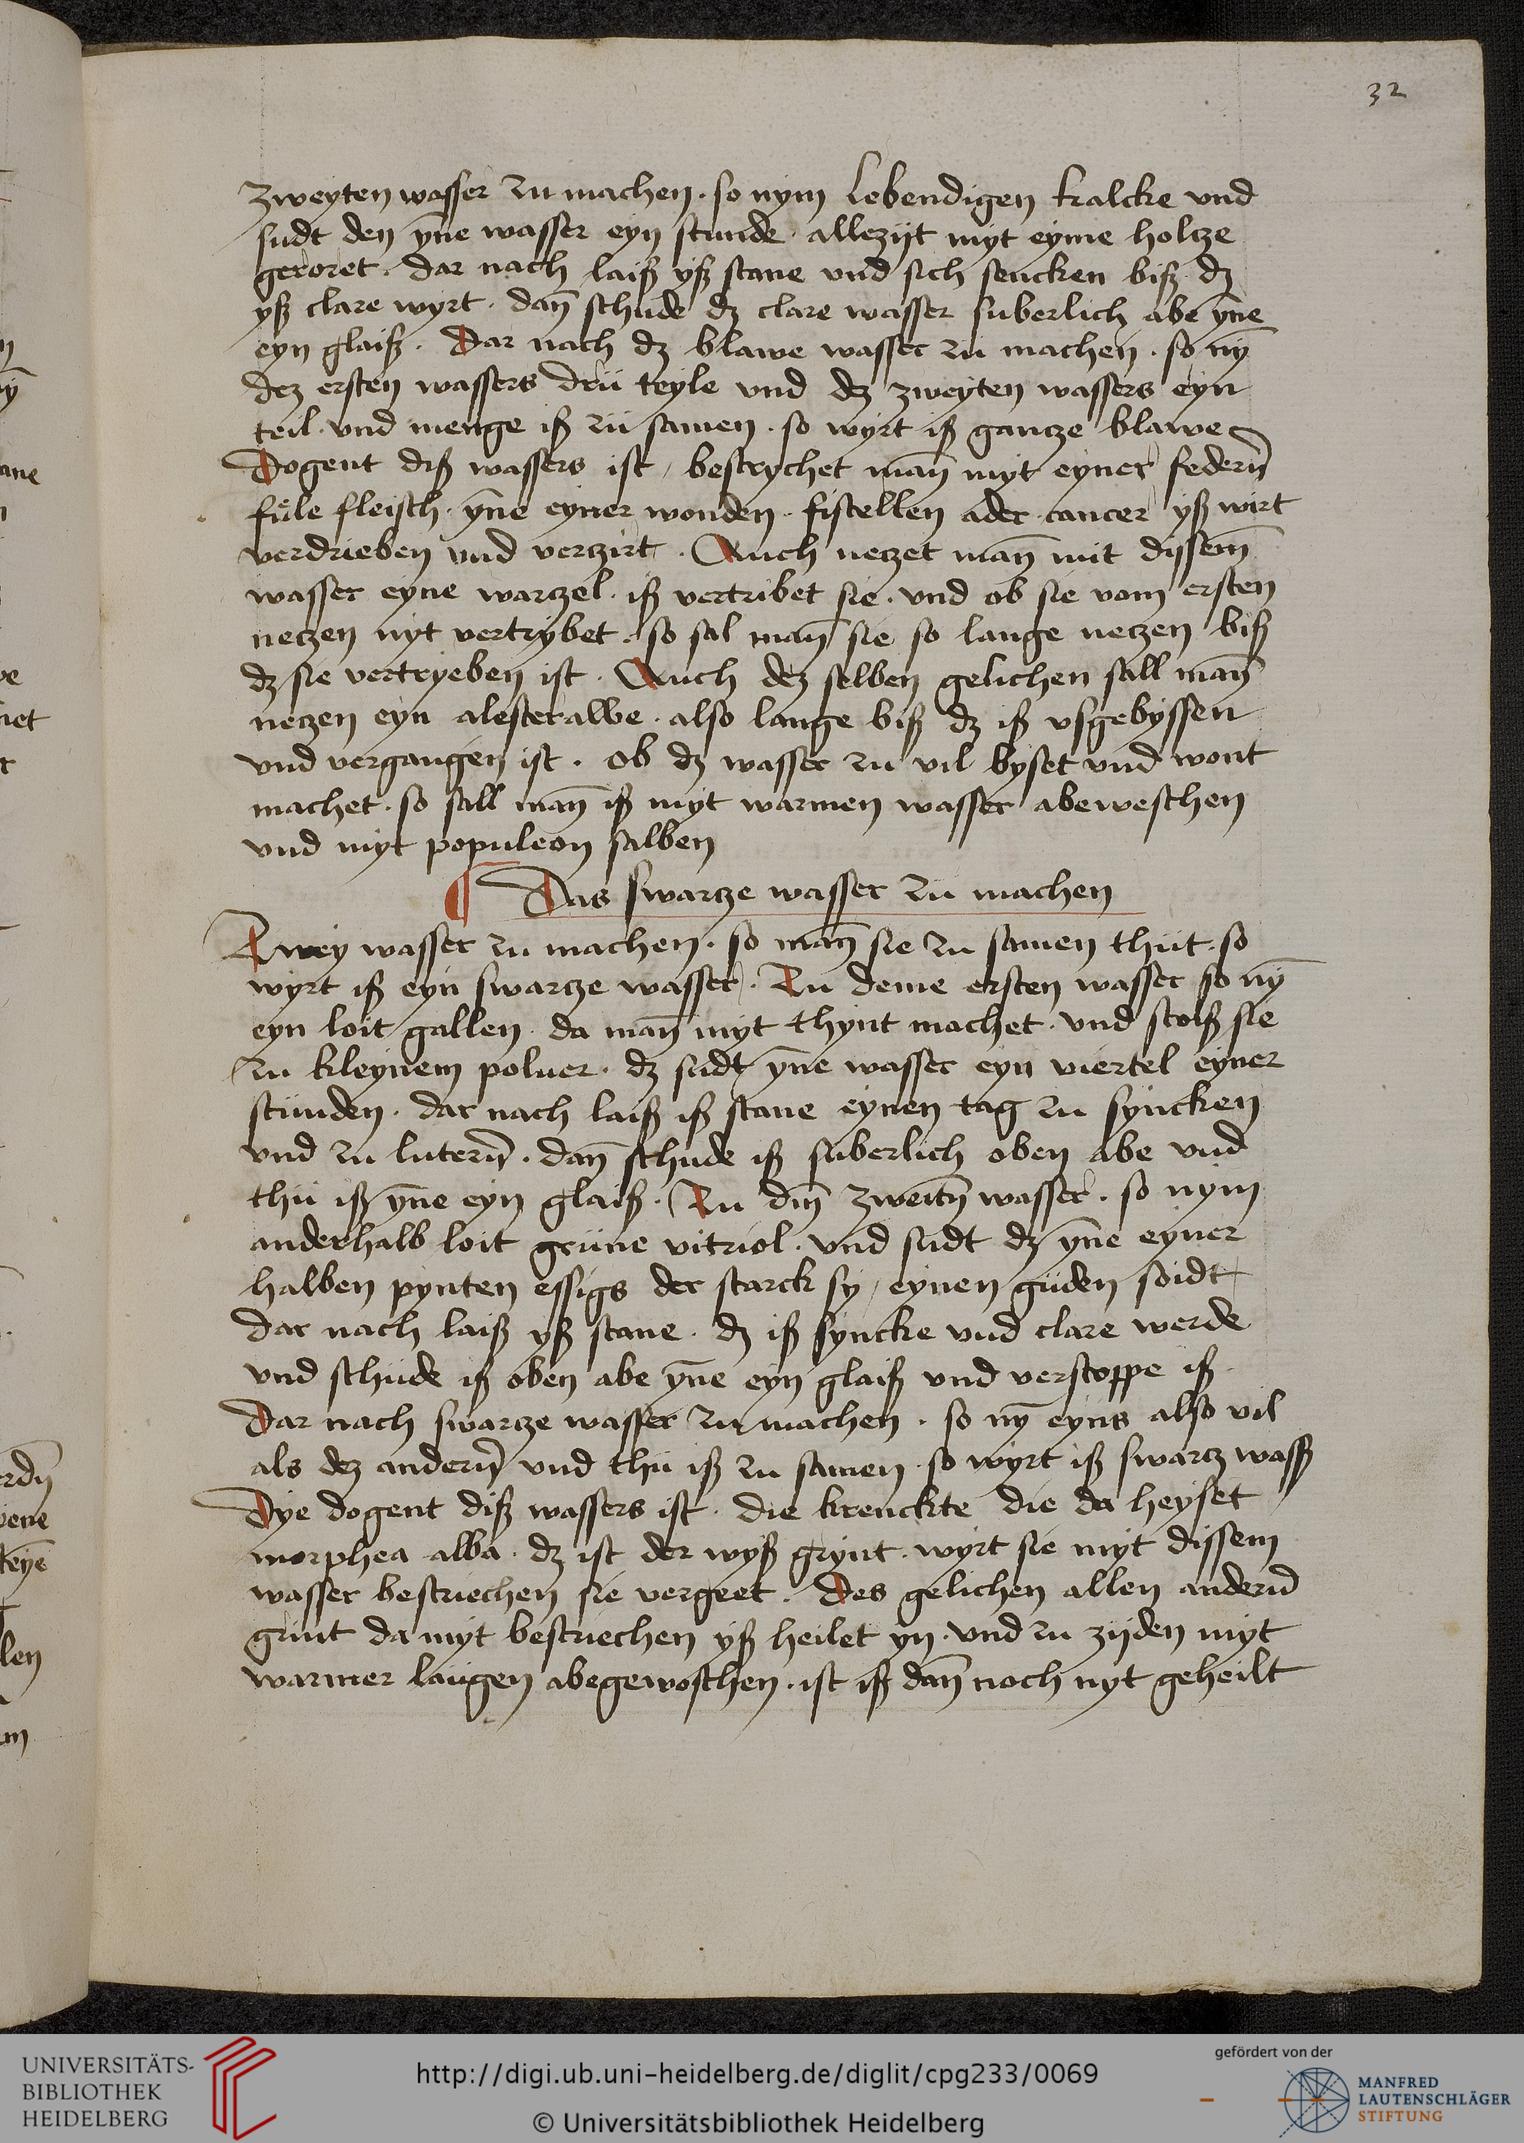 32
zweyten wasser zu machen · so nym lebendigen kalcke vnd
sudt den yn̄e wasser eyn stunde · allezijt myt eyme holcze
geroret · dar nach laiß yß stane vnd sich sencken biß dz
yß clare wyrt · dan̄ schude dz clare wasser suberlich abe yn̄e
eyn glaiß · Dar nach dz blawe wasser zu machen · so ny̅
dez ersten wassers drü teyle vnd dez zweyten wassers eyn
teil · vnd menge iß zü samen · so wyrt iß gancze blawe
Dogent diß wassers ist / bestrychet man̄ myt eyner federn̄
füle fleisch · yn̄e eyner wonden · fistellen ader cancer yß wirt
verdrieben vnd verczirt · Auch neczet man̄ mit dissem̄
wasser eyne warczel · iß vertribet sie · vnd ob sie vom ersten
neczen nyt vertrybet · so sal man̄ sie so lange neczen biß
dz sie vertryeben ist · Auch dez selben gelichen sall man̄
neczen eyn alesteralbe · also lange biß dz iß vsgebyssen
vnd vergangen ist · ob dz wasser zu vil byset vnd wont
machet · so sall man̄ iß myt warmen wasser abeweschen
vnd myt populeon salben
¶ Das swarcze wasser zü machen
Zwey wasser zu machen · so man̄ sie zu samen thüt · so
wyrt iß eyn swarcze wasser · Zu deme ersten wasser so ny̅
eyn loit gallen · da man̄ myt thynt machet · vnd stoiß sie
zu kleynem poluer · dz sudt yn̄e wasser eyn viertel eyner
stünden · dar nach laiß iß stane eynen tag zu syncken
vnd zu lutern̄ · dan̄ schude iß suberlich oben abe vnd
thü iß yn̄e eyn glaiß · Zu dm̄ zweitn̄ wasser · so nym
anderhalb loit grüne vitriol · vnd sudt dz yn̄e eyner
halben pynten essigs der starck sy / eynen güden soidt
dar nach laiß yß stane · dz iß syncke vnd clare werde
vnd schude iß oben abe yn̄e eyn glaiß vnd verstoppe iß
Dar nach swarcze wasser zu machen · so ny̅ eyns also vil
als dez andern̄ vnd thü iß zu samen · so wyrt iß swarcz wasß
Dye dogent diß wassers ist · die krenckte die da heyset
morphea alba · dz ist der wyß grynt · wyrt sie myt dissem
wasser bestriechen sie vergeet · Des gelichen allen andern̄
grint da myt bestriechen yß heilet yn · vnd zu zijden myt
warmer laugen abegewoschen · ist iß dan̄ noch nyt geheilt
UNIVERSITÄTS-
BIBLIOTHEK
HEIDELBERG
http://digi.ub.uni-heidelberg.de/diglit/cpg233/0069
© Universitätsbibliothek Heidelberg
gefördert von der
MANFRED
LAUTENSCHLÄGER
STIFTUNG